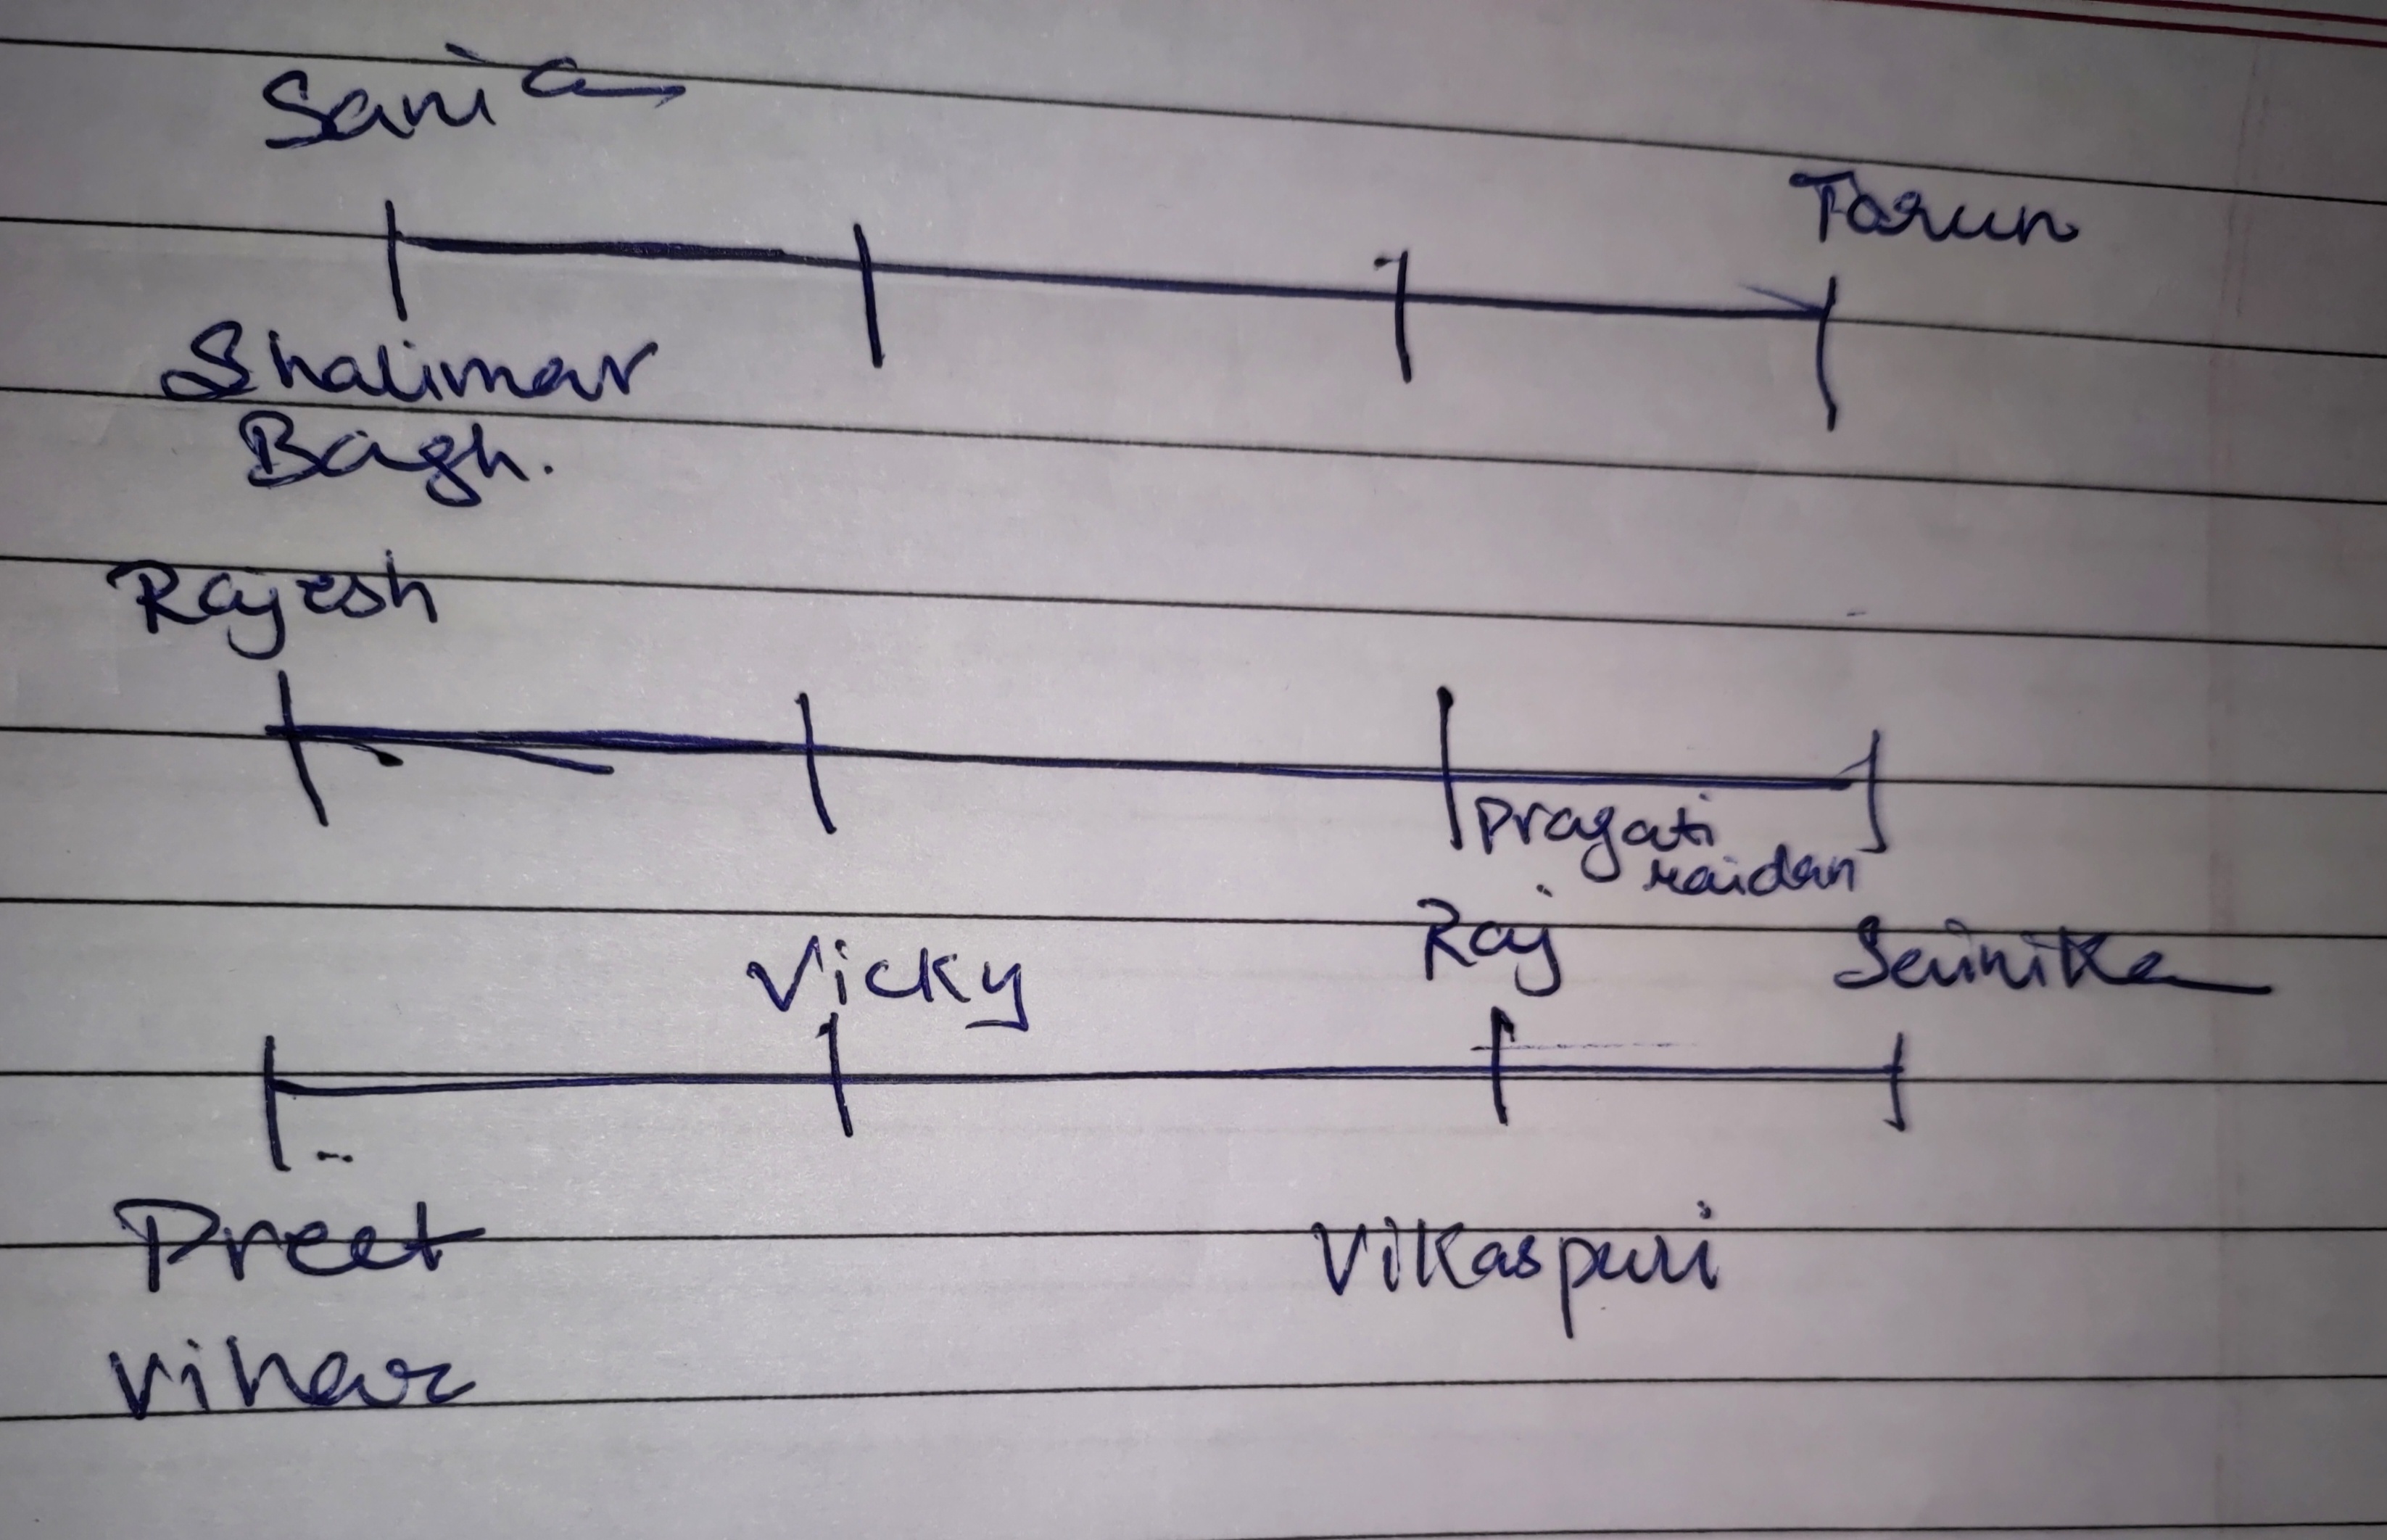 Sania
Tarun
Shalimar
Bagh.
Rajesh
Pragati
maidan
Vicky Raj Sainika
Preet Vikaspuri
vihar